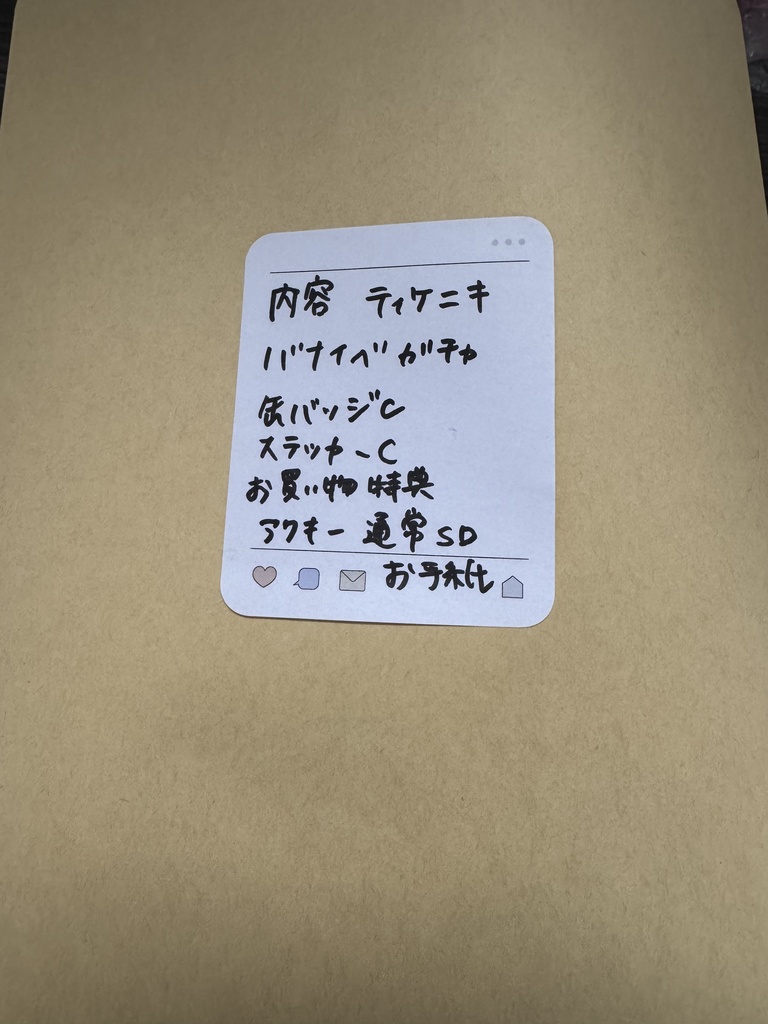 内容 ティケニキ
バナイベ ガチャ
缶バッジC
ステッカーC
お買い物 特典
アクキー 通常 SD
お手紙